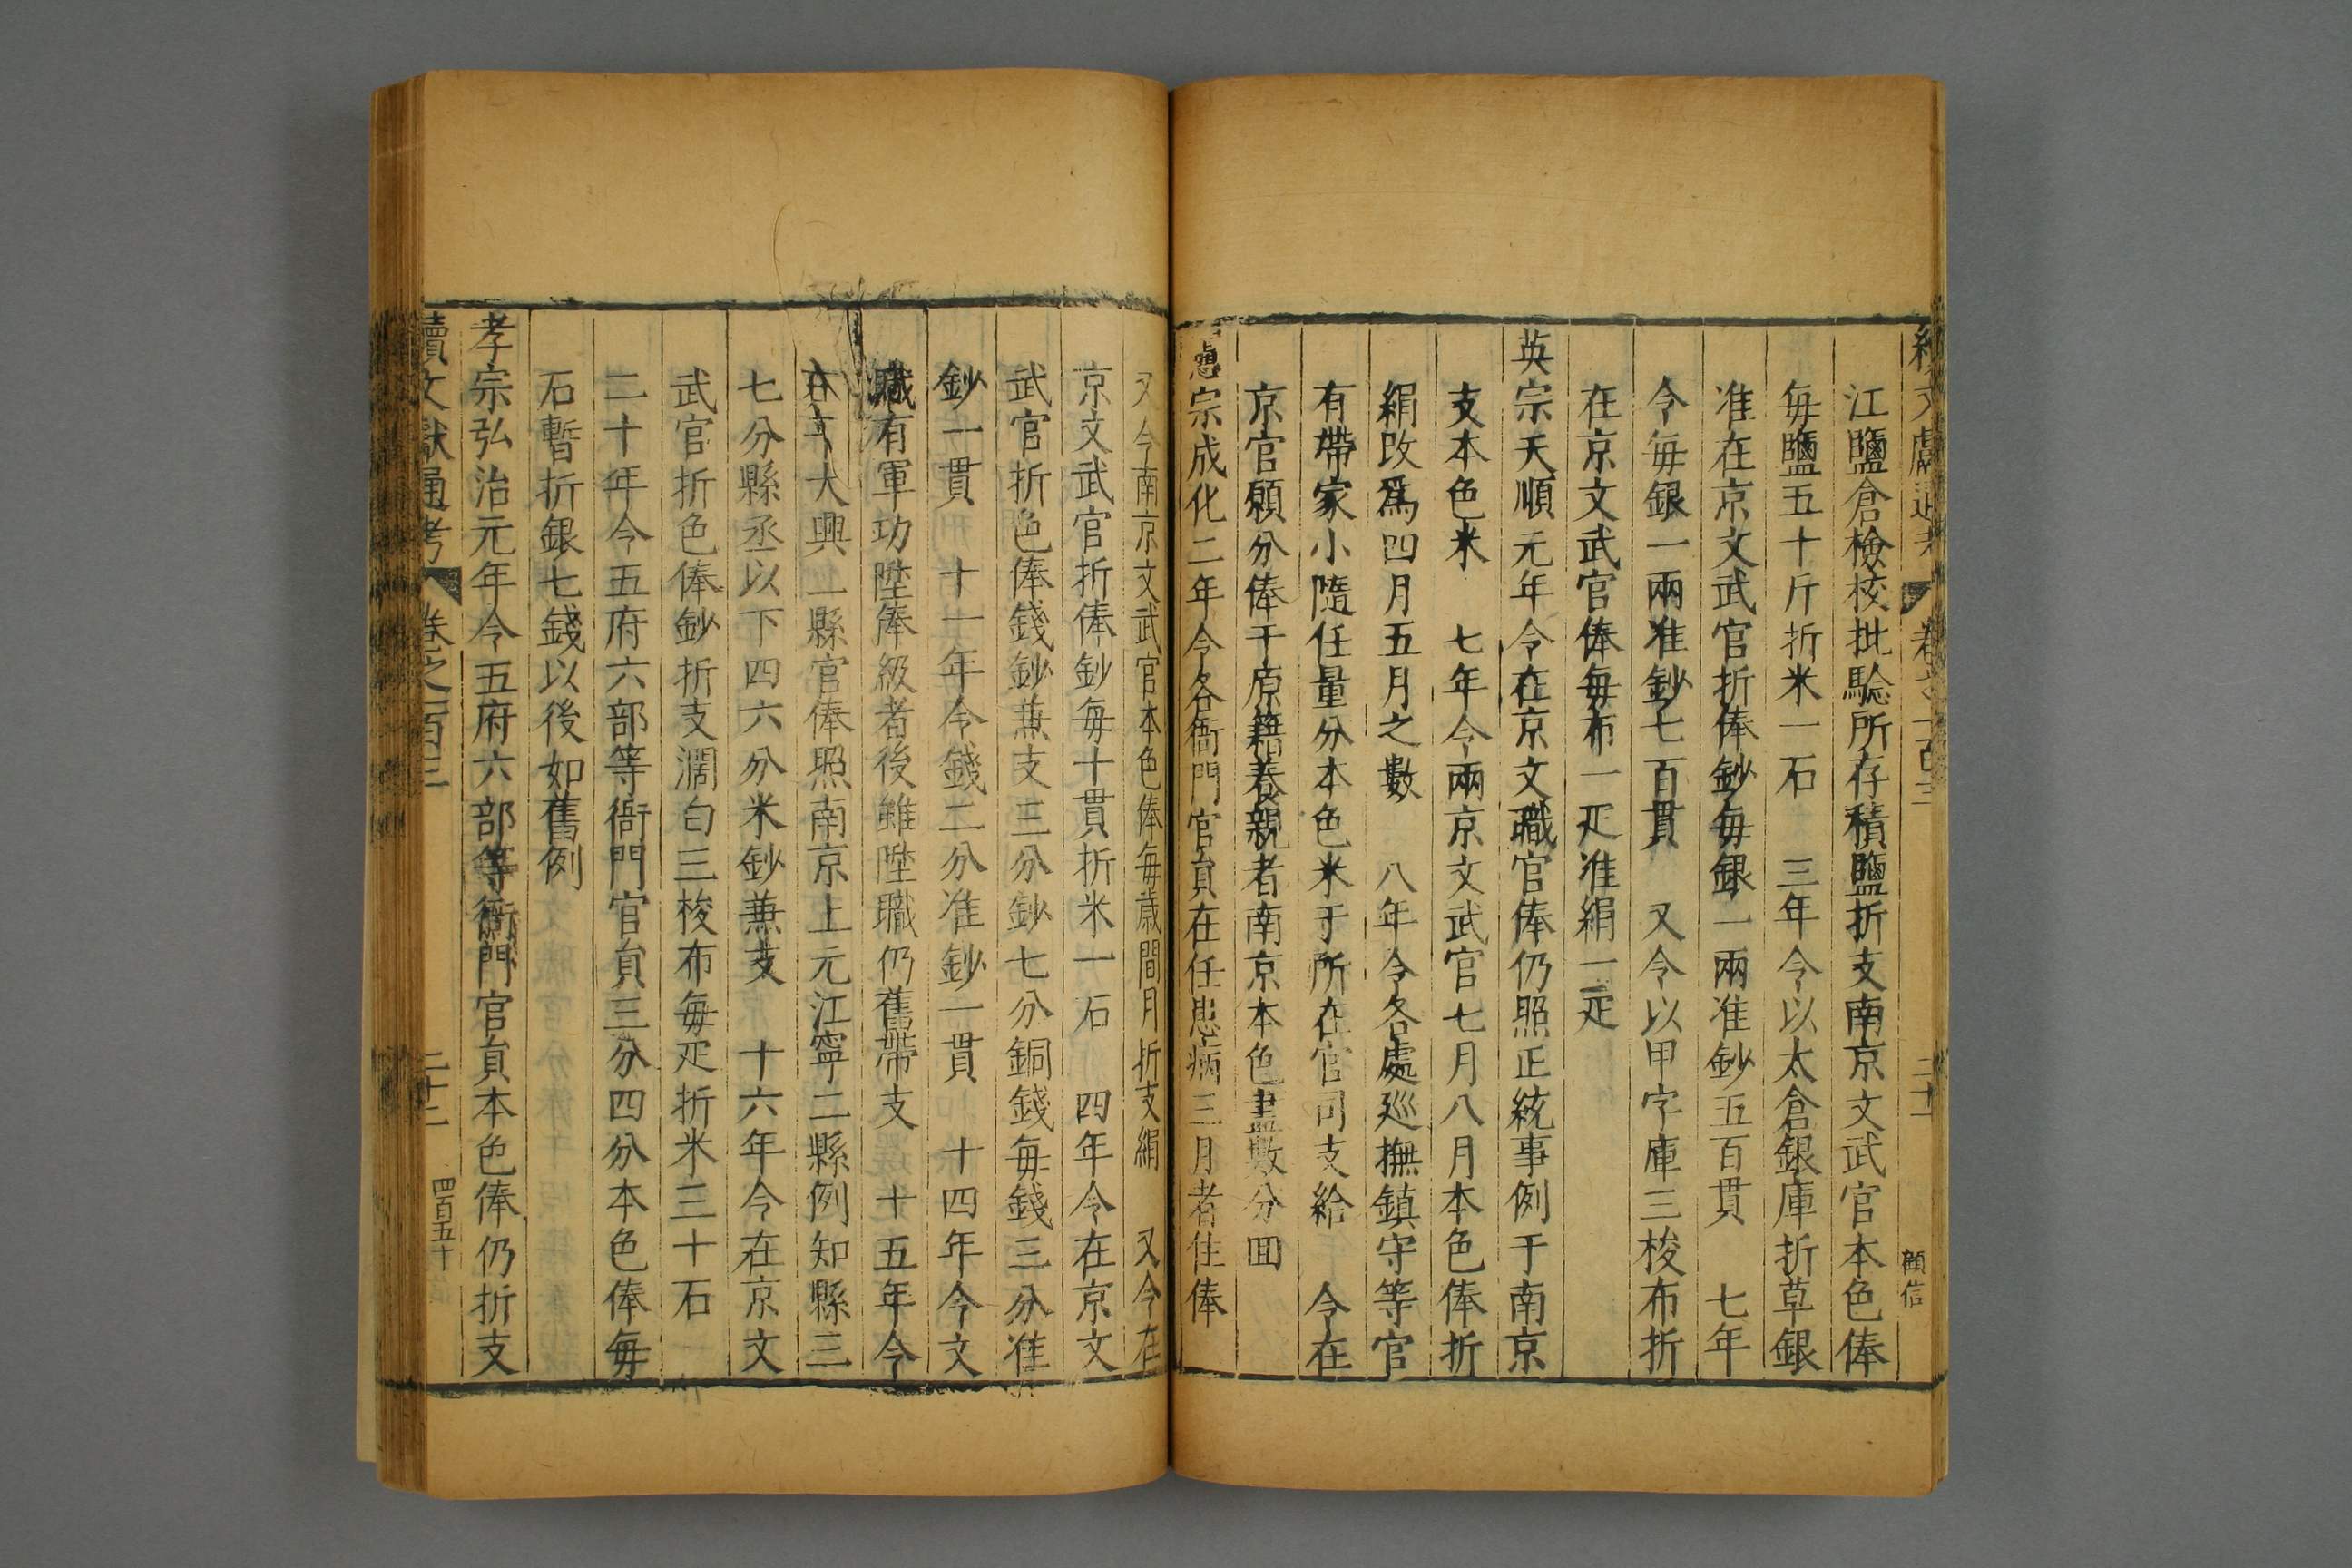 續文獻通考 卷之一百三 二十一 顧信
江鹽倉檢校批驗所存積鹽折支南京文武官本色俸
每鹽五十斤折米一石 三年令以太倉銀庫折草銀
准在京文武官折俸鈔每銀一兩准鈔五百貫 七年
令每銀一兩准鈔七百貫 又令以甲字庫三梭布折
在京文武官俸每布一疋准絹二疋
英宗天順元年令在京文職官俸仍照正統事例于南京
支本色米 七年令兩京文武官七月八月本色俸折
絹改爲四月五月之數 八年令各處巡撫鎮守等官
有帶家小隨任量分本色米于所在官司支給 令在
京官願分俸于原籍養親者南京本色盡數分回
憲宗成化二年令各衙門官負在任患病三月者住俸
又令南京文武官本色俸每歲間月折支絹 又令在
京文武官折俸鈔每十貫折米一石 四年令在京文
武官折色俸錢鈔兼支三分鈔七分銅錢每錢三分准
鈔一貫 十一年令錢二分准鈔一貫 十四年令文
職有軍功陞俸級者後雖陞職仍舊帶支 十五年令
大興二縣官俸照南京上元江寧二縣例知縣三
七分縣丞以下四六分米鈔兼支 十六年令在京文
武官折色俸鈔折支濶白三梭布每疋折米三十石
二十年令五府六部等衙門官負三分四分本色俸每
石暫折銀七錢以後如舊例
孝宗弘治元年令五府六部等衙門官負本色俸仍折支
續文獻通考 卷之一百三 二十二 四百五十